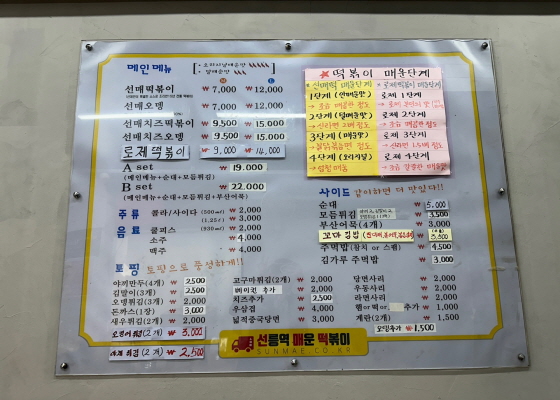 메인메뉴
M L
선매떡볶이 ₩ 7,000 ₩ 12,000
선매오뎅 ₩ 7,000 ₩ 12,000
선매치즈떡볶이 ₩ 9,500 ₩ 15,000
선매치즈오뎅 ₩ 9,500 ₩ 15,000
로제떡볶이 ₩ 9,000 ₩ 14,000
A set ₩ 19,000
(메인메뉴+순대+모듬튀김)
B set ₩ 22,000
(메인메뉴+순대+모듬튀김+부산어묵)
주류 음료
콜라/사이다 (500ml) ₩ 2,000
(1.25ℓ) ₩ 3,000
쿨피스 (930ml) ₩ 2,000
소주 ₩ 4,000
맥주 ₩ 4,000
토핑 토핑으로 풍성하게!!
야끼만두(4개) ₩ 2,500
김말이(3개) ₩ 2,500
오뎅튀김(3개) ₩ 2,000
돈까스(1장) ₩ 3,000
새우튀김(2개) ₩ 2,000
오징어튀김(2개) ₩ 3,000
야채튀김(2개) ₩ 2,500
고구마튀김(2개) ₩ 2,000
베이컨 추가 ₩ 2,000
치즈추가 ₩ 2,500
우삼겹 ₩ 4,000
넓적중국당면 ₩ 3,000
당면사리 ₩ 2,000
우동사리 ₩ 2,000
라면사리 ₩ 2,000
추가 ₩ 1,000
계란(2개) ₩ 1,500
₩ 1,500
★ 떡볶이 매운단계
선매떡 매운단계
1단계 (안매운맛)
2단계 (덜매운맛)
→ 신라면 2배 정도
3단계 (매운맛)
→ 불닭볶음면 정도
4단계 (오리지널)
로제떡볶이 매운단계
로제 1단계
로제 2단계
로제 3단계
→ 신라면 1.5배 정도
로제 4단계
사이드 같이하면 더 맛있다!!
순대 ₩ 5,000
모듬튀김 ₩ 3,500
부산어묵(4개) ₩ 3,000
꼬마김밥 ₩ 3,500
주먹밥(참치 or 스팸) ₩ 4,500
김가루 주먹밥 ₩ 3,000
선릉역 매운 떡볶이
SUNMAE.CO.KR